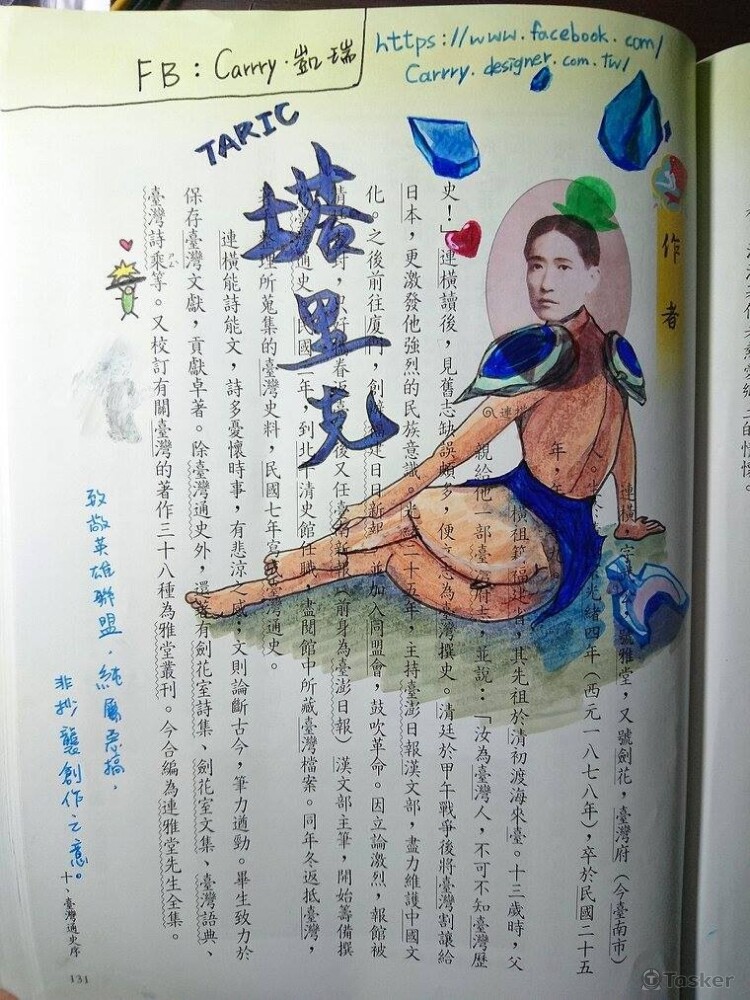 FB : Carrry.凱瑞
https://www.facebook.com/
Carrry.designer.com.tw/
TARIC
塔里克
作者
連橫
連橫 字 號雅堂，又號劍花，臺灣府（今臺南市）
人。生於 光緒四年（西元一八七八年），卒於民國二十五
年，年
橫祖籍福建省，其先祖於清初渡海來臺。十三歲時，父
親給他一部臺灣府志，並說：「汝為臺灣人，不可不知臺灣歷
史！」連橫讀後，見舊志缺誤頗多，便立志為臺灣撰史。清廷於甲午戰爭後將臺灣割讓給
日本，更激發他強烈的民族意識。光緒二十五年，主持臺澎日報漢文部，盡力維護中國文
化。之後前往廈門，創辦福建日日新報，並加入同盟會，鼓吹革命。因立論激烈，報館被
清 封，只好攜眷返 後又任臺南新報（前身為臺澎日報）漢文部主筆，開始籌備撰
臺灣通史。民國 年，到北平清史館任職，盡閱館中所藏臺灣檔案。同年冬返抵臺灣，
整理所蒐集的臺灣史料，民國七年寫成臺灣通史。
連橫能詩能文，詩多憂懷時事，有悲涼之感；文則論斷古今，筆力遒勁。畢生致力於
保存臺灣文獻，貢獻卓著。除臺灣通史外，還著有劍花室詩集、劍花室文集、臺灣語典、
臺灣詩乘等。又校訂有關臺灣的著作三十八種為雅堂叢刊。今合編為連雅堂先生全集。
致敬英雄聯盟，純屬惡搞，
非抄襲創作之意。
十、臺灣通史序
131
Tasker